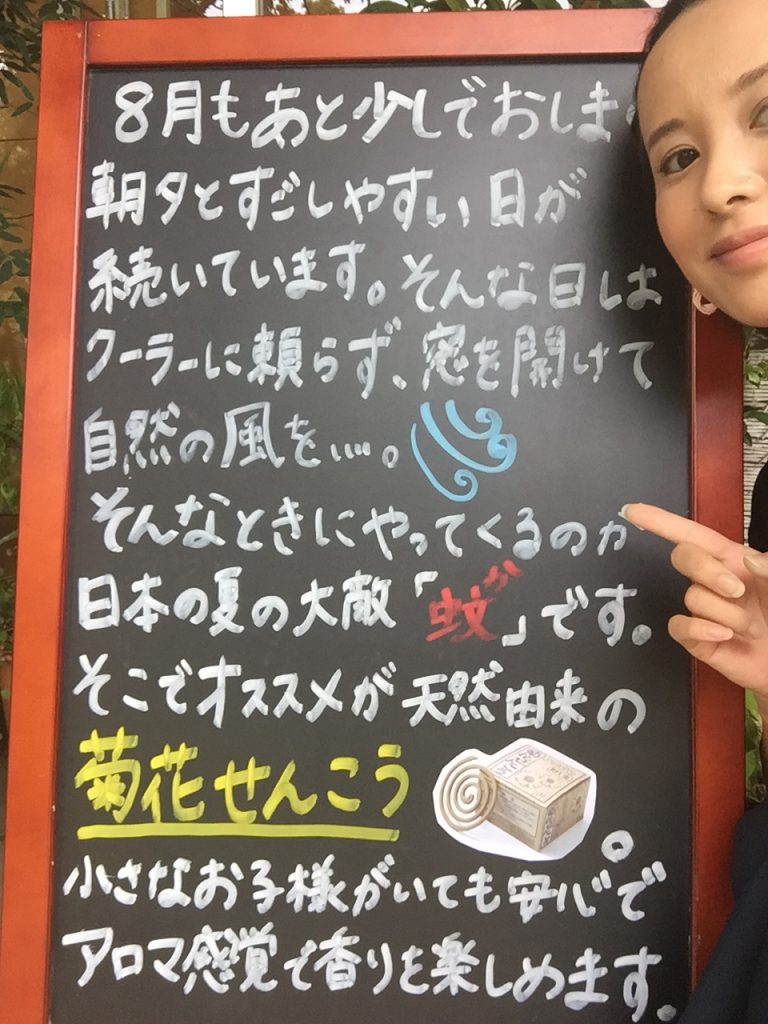 8月もあと少しでおしま
朝夕とすごしやすい日が
続いています。そんな日は
クーラーに頼らず、窓を開けて
自然の風を…。
そんなときにやってくるのが
日本の夏の大敵「蚊」です。
か
そこでオススメが天然由来の
菊花せんこう。
小さなお子様がいても安心で
アロマ感覚で香りを楽しめます。